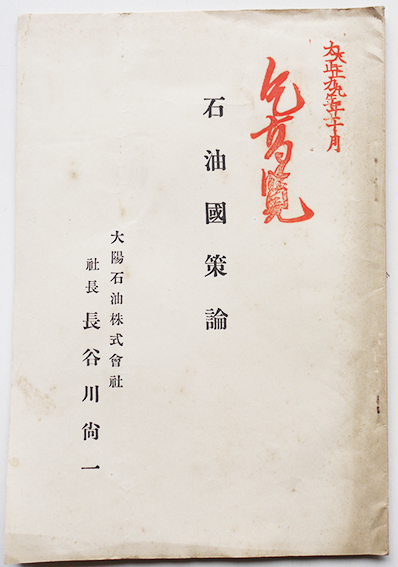 大正九年十月
乞高覧
石油國策論
大陽石油株式會社
社長 長谷川尚一